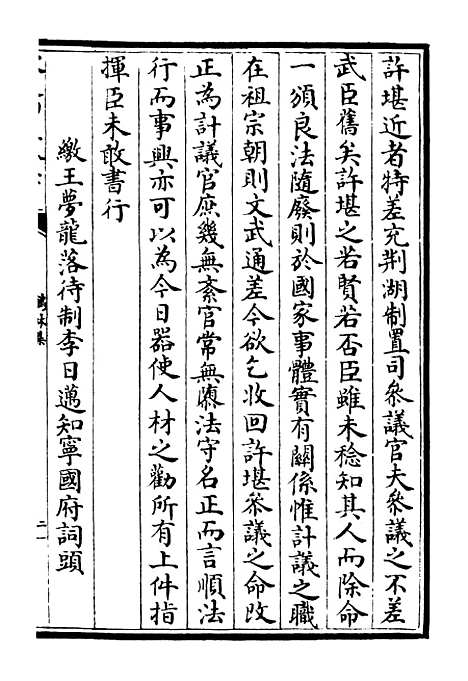 許堪近者特差充荆湖制置司參議官夫參議之不差
武臣舊矣許堪之若賢若否臣雖未稔知其人而除命
一頒良法隨廢則於國家事體實有關係惟計議之職
在祖宗朝則文武通差今欲乞收回許堪參議之命改
正為計議官庶幾無紊官常無隳法守名正而言順法
行而事興亦可以為今日器使人材之勸所有上件指
揮臣未敢書行
繳王夢龍落待制李日邁知寧國府詞頭